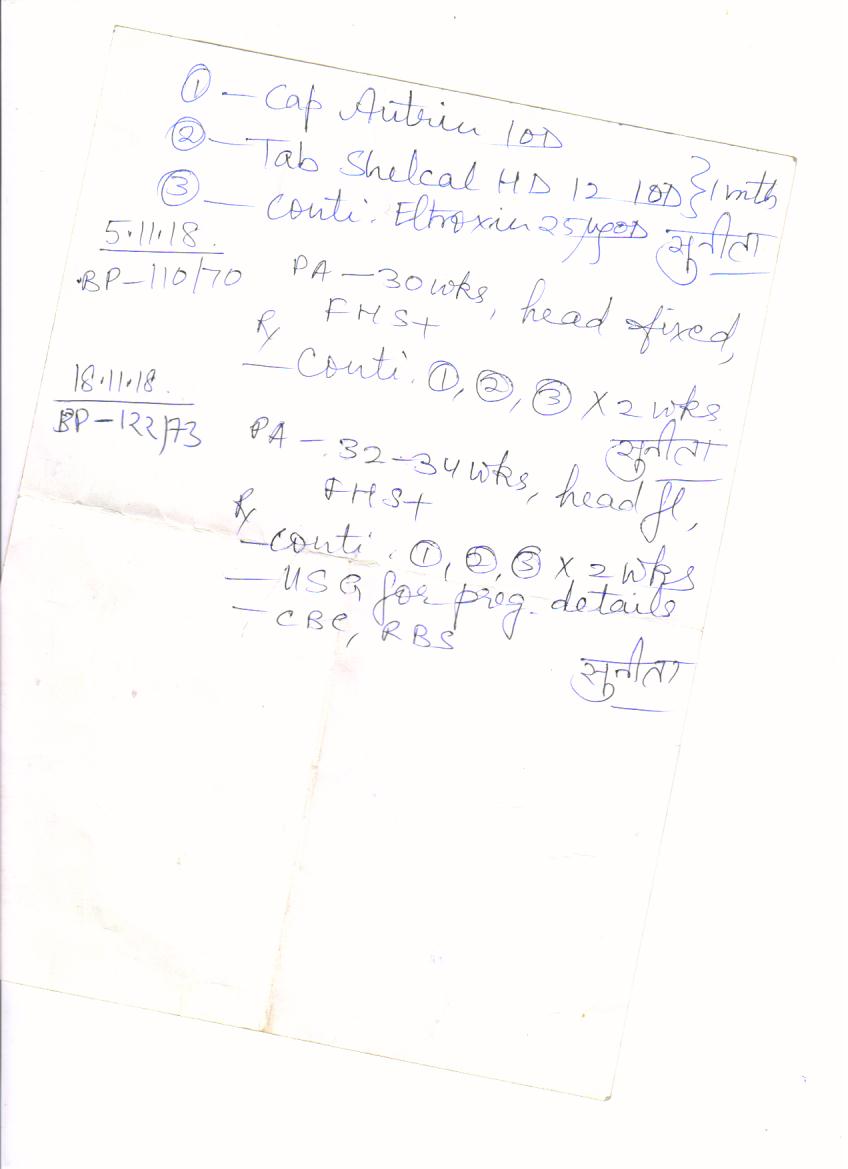 ① — Cap Autrin 1OD
② — Tab Shelcal HD 12 1OD } 1 mth
③ — Conti. Eltroxin 25 µg OD सुनीता
5.11.18.
BP – 110/70 PA – 30 wks, head fixed,
FHS+
Rx
— Conti. ①, ②, ③ X 2 wks
सुनीता
18.11.18.
BP – 122/73 PA – 32–34 wks, head fl,
FHS+
Rx
— Conti. ①, ②, ③ X 2 wks
— USG for preg. details
— CBC, RBS
सुनीता